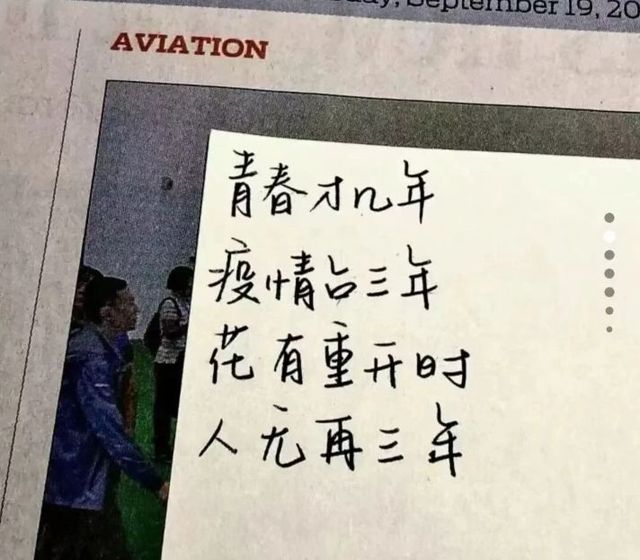 day, September 19, 20
AVIATION
青春才几年
疫情占三年
花有重开时
人无再三年